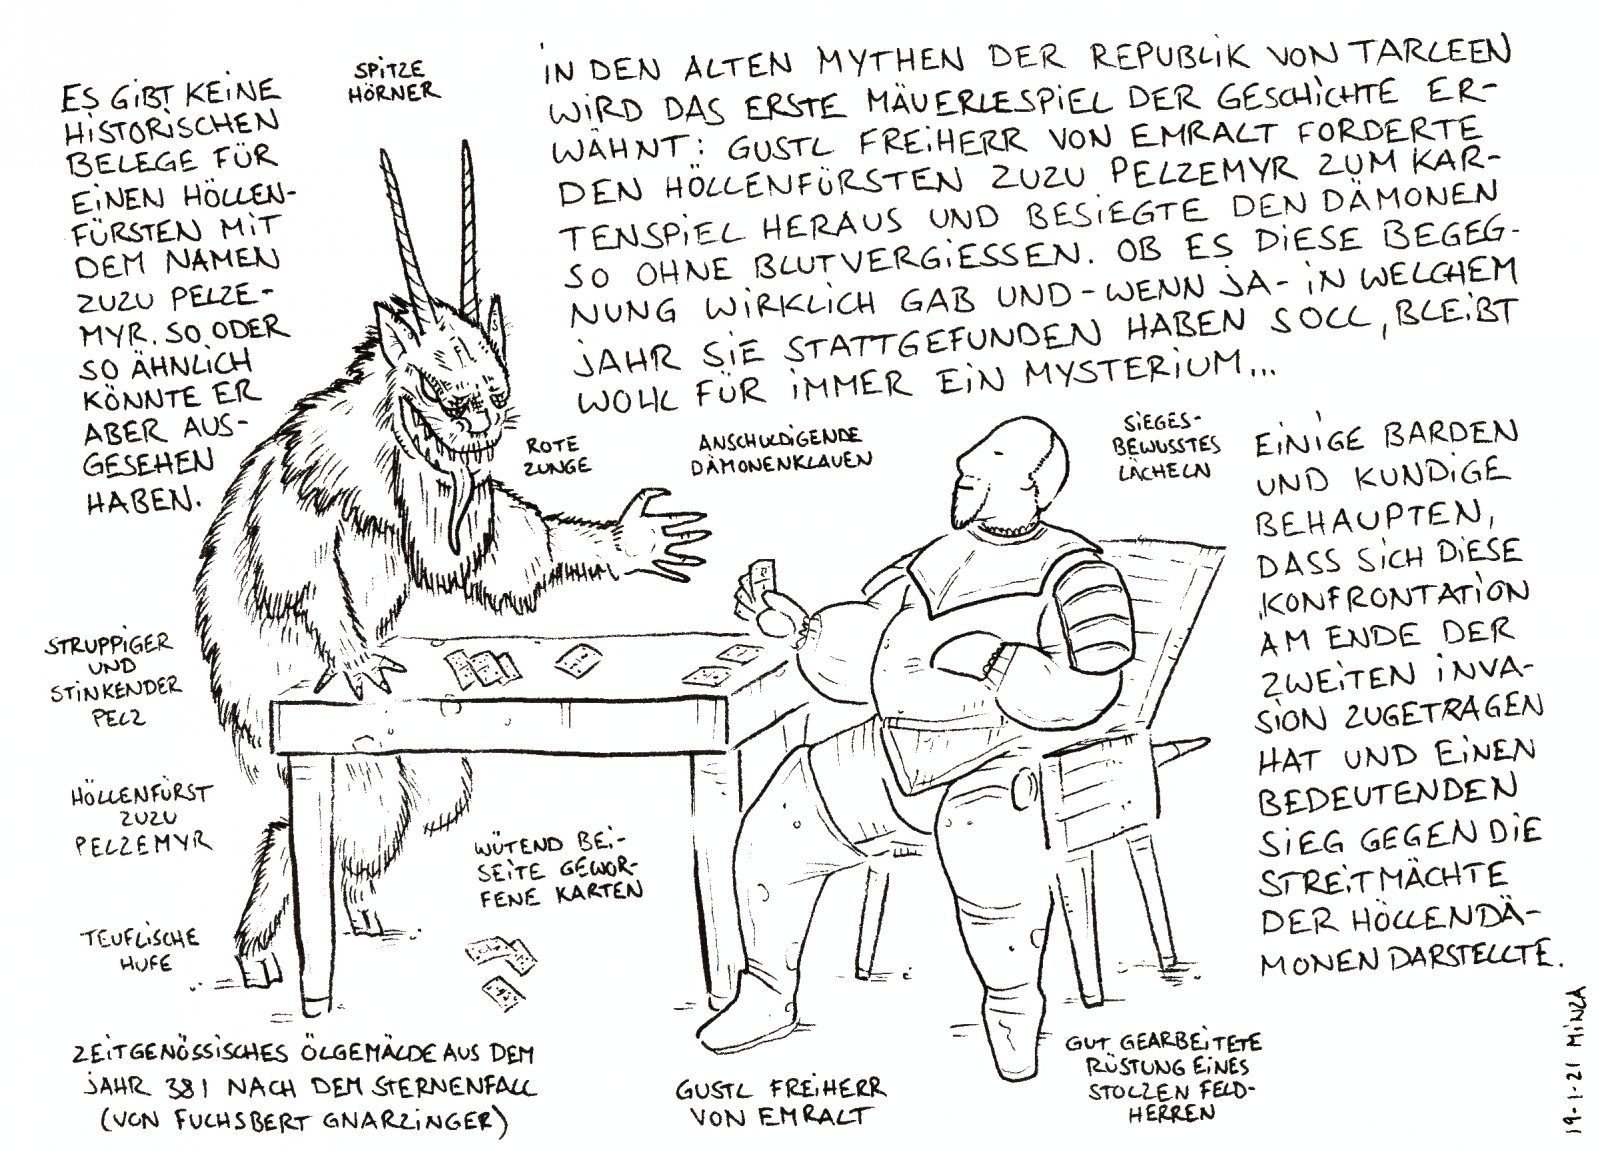 ES GIBT KEINE
HISTORISCHEN
BELEGE FÜR
EINEN HÖLLEN-
FÜRSTEN MIT
DEM NAMEN
ZUZU PELZE-
MYR. SO ODER
SO ÄHNLICH
KÖNNTE ER
ABER AUS-
GESEHEN
HABEN.
SPITZE
HÖRNER
IN DEN ALTEN MYTHEN DER REPUBLIK VON TARLEEN
WIRD DAS ERSTE MÄUERLESPIEL DER GESCHICHTE ER-
WÄHNT: GUSTL FREIHERR VON EMRALT FORDERTE
DEN HÖLLENFÜRSTEN ZUZU PELZEMYR ZUM KAR-
TENSPIEL HERAUS UND BESIEGTE DEN DÄMONEN
SO OHNE BLUTVERGIESSEN. OB ES DIESE BEGEG-
NUNG WIRKLICH GAB UND - WENN JA - IN WELCHEM
JAHR SIE STATTGEFUNDEN HABEN SOLL, BLEIBT
WOHL FÜR IMMER EIN MYSTERIUM...
ROTE
ZUNGE
ANSCHULDIGENDE
DÄMONENKLAUEN
SIEGES-
BEWUSSTES
LÄCHELN
EINIGE BARDEN
UND KUNDIGE
BEHAUPTEN,
DASS SICH DIESE
KONFRONTATION
AM ENDE DER
ZWEITEN INVA-
SION ZUGETRAGEN
HAT UND EINEN
BEDEUTENDEN
SIEG GEGEN DIE
STREITMÄCHTE
DER HÖLLENDÄ-
MONEN DARSTELLTE.
STRUPPIGER
UND
STINKENDER
PELZ
HÖLLENFÜRST
ZUZU
PELZEMYR
TEUFLISCHE
HUFE
WÜTEND BEI-
SEITE GEWOR-
FENE KARTEN
ZEITGENÖSSISCHES ÖLGEMÄLDE AUS DEM
JAHR 381 NACH DEM STERNENFALL
(VON FUCHSBERT GNARZINGER)
GUSTL FREIHERR
VON EMRALT
GUT GEARBEITETE
RÜSTUNG EINES
STOLZEN FELD-
HERREN
19-1-21 MINZA